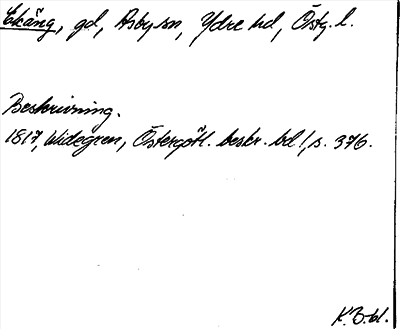 Ekäng, gd, Asby sn, Ydre hd, Östg. l.
Beskrivning.
1817, Widegren, Östergötl. beskr. bd 1, s. 376.
K.B-bl.